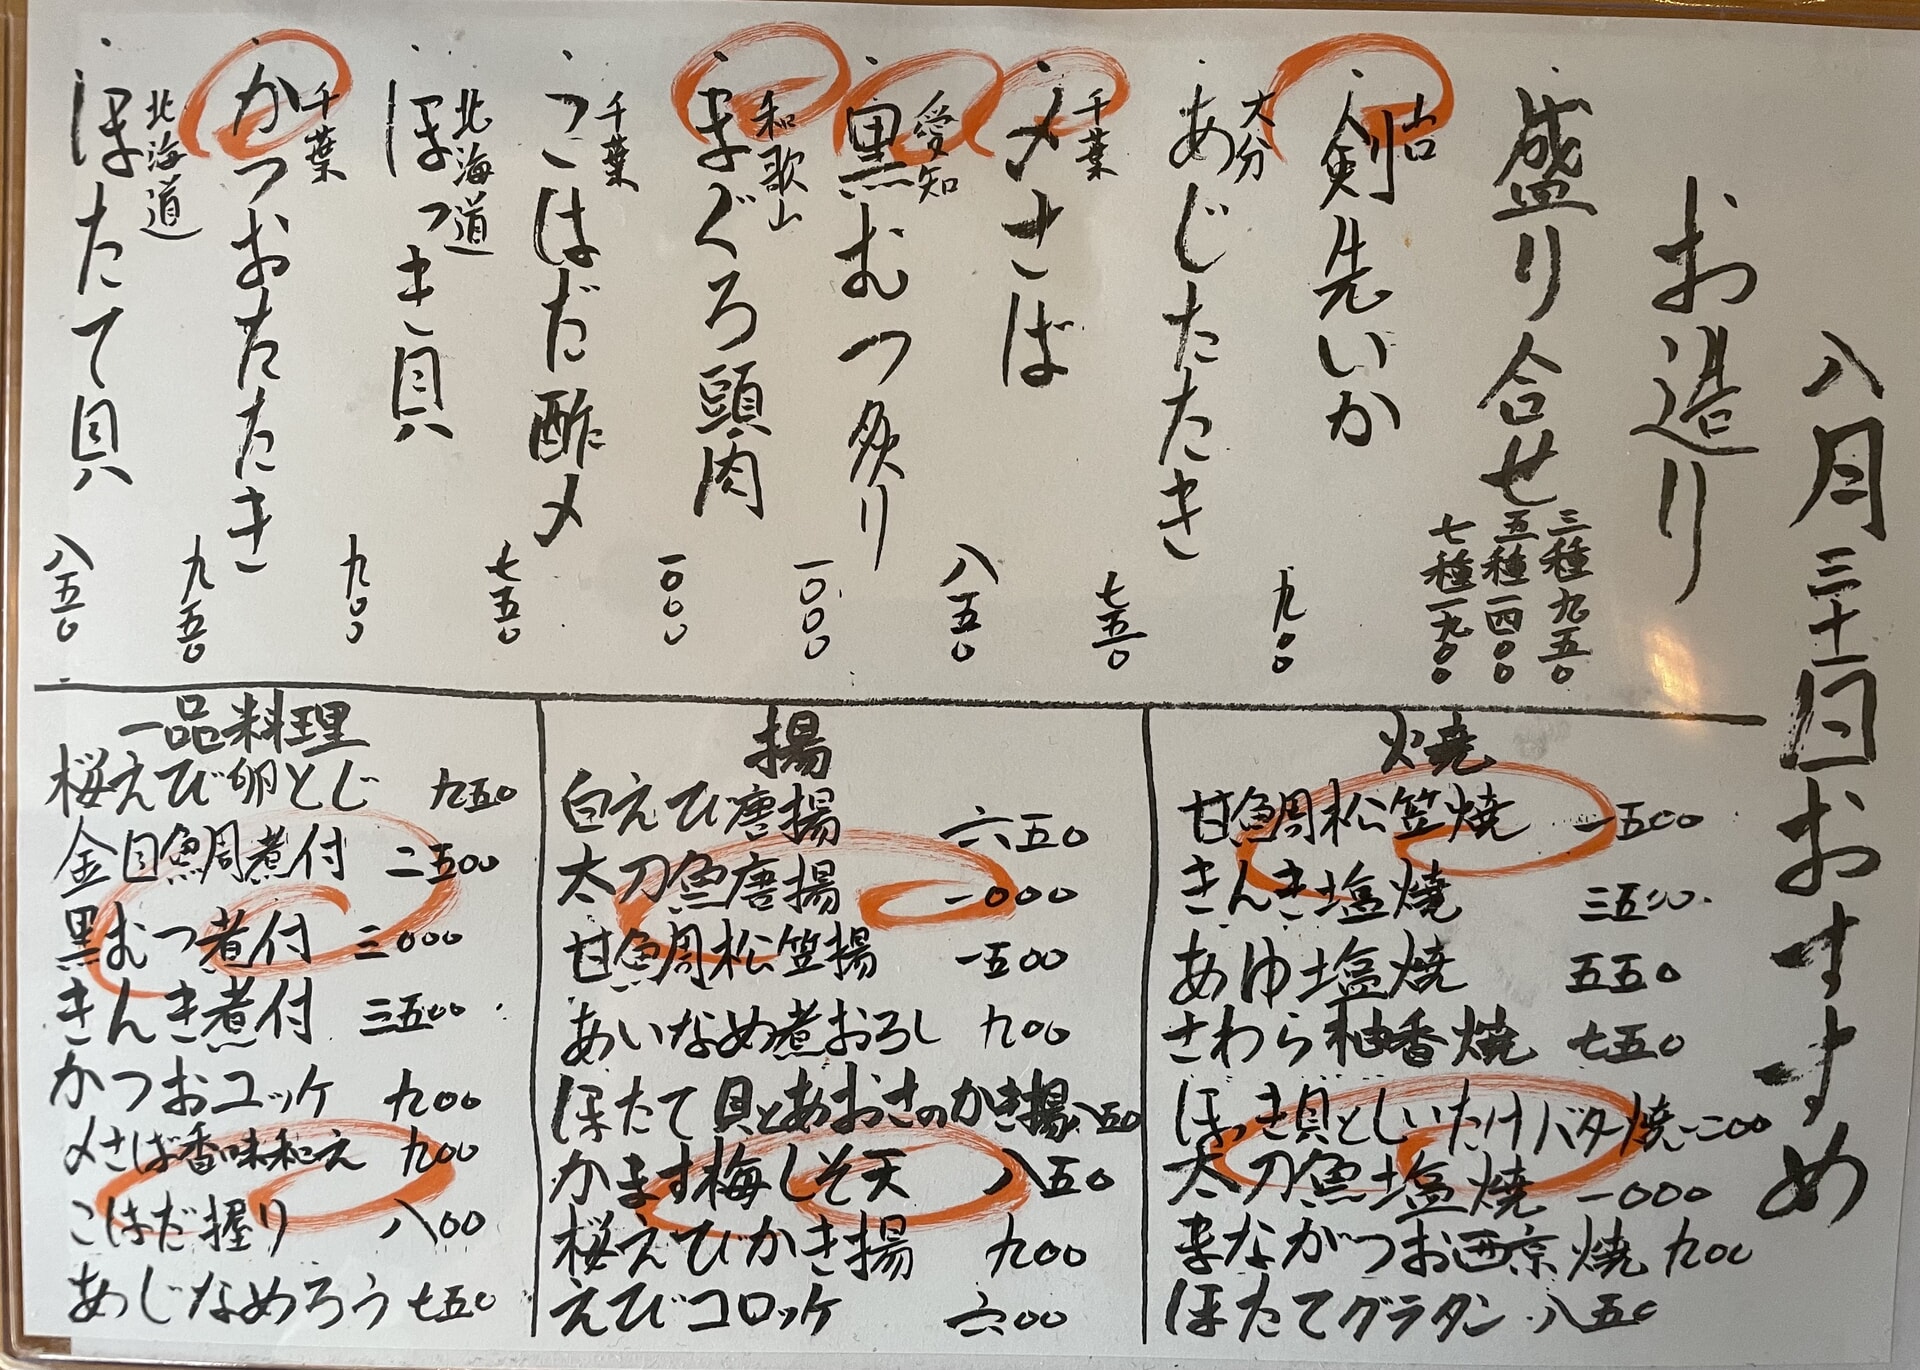 八月三十一日おすすめ
お造り
盛り合せ
三種九五〇
五種一四〇〇
七種一九〇〇
山口
剣先いか 九〇〇
大分
あじたたき 七五〇
千葉
〆さば 八五〇
愛知
黒むつ炙り 一〇〇〇
和歌山
まぐろ頭肉 一〇〇〇
千葉
こはだ酢〆 七五〇
北海道
ほっき貝 九〇〇
千葉
かつおたたき 九五〇
北海道
ほたて貝 八五〇
焼
甘鯛松笠焼 一五〇〇
きんき塩焼 三五〇〇
あゆ塩焼 五五〇
さわら柚香焼 七五〇
ほっき貝としいたけバター焼 一二〇〇
太刀魚塩焼 一〇〇〇
まながつお西京焼 九〇〇
ほたてグラタン 八五〇
揚
白えび唐揚 六五〇
太刀魚唐揚 一〇〇〇
甘鯛松笠揚 一五〇〇
あいなめ煮おろし 九〇〇
ほたて貝とあおさのかき揚 八五〇
かます梅しそ天 八五〇
桜えびかき揚 九〇〇
えびコロッケ 六〇〇
一品料理
桜えび卵とじ 九五〇
金目鯛煮付 二五〇〇
黒むつ煮付 三〇〇〇
きんき煮付 三五〇〇
かつおユッケ 九〇〇
〆さば香味和え 九〇〇
こはだ握り 八〇〇
あじなめろう 七五〇